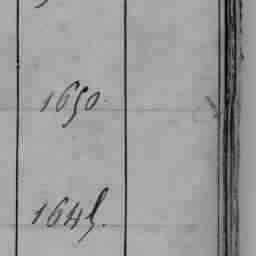 1650.
1645.